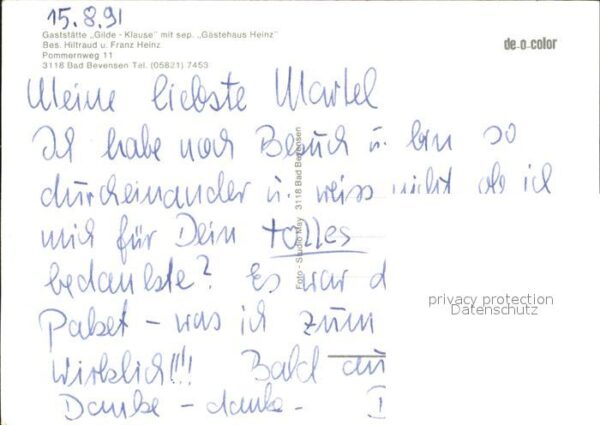 15.8.91
Gaststätte „Gilde - Klause" mit sep. „Gästehaus Heinz"
Bes. Hiltraud u. Franz Heinz
Pommernweg 11
3118 Bad Bevensen Tel. (05821) 7453
de-o-color
Meine liebste Martel
Ich habe noch Besuch u. bin so
durcheinander u. weiss nicht ob ich
mich für Dein tolles
bedankte? Es war d
Paket - was ich zum
wirklich!!! Bald du
Danke - danke -
Foto - Studio May 3118 Bad Bevensen
privacy protection
Datenschutz